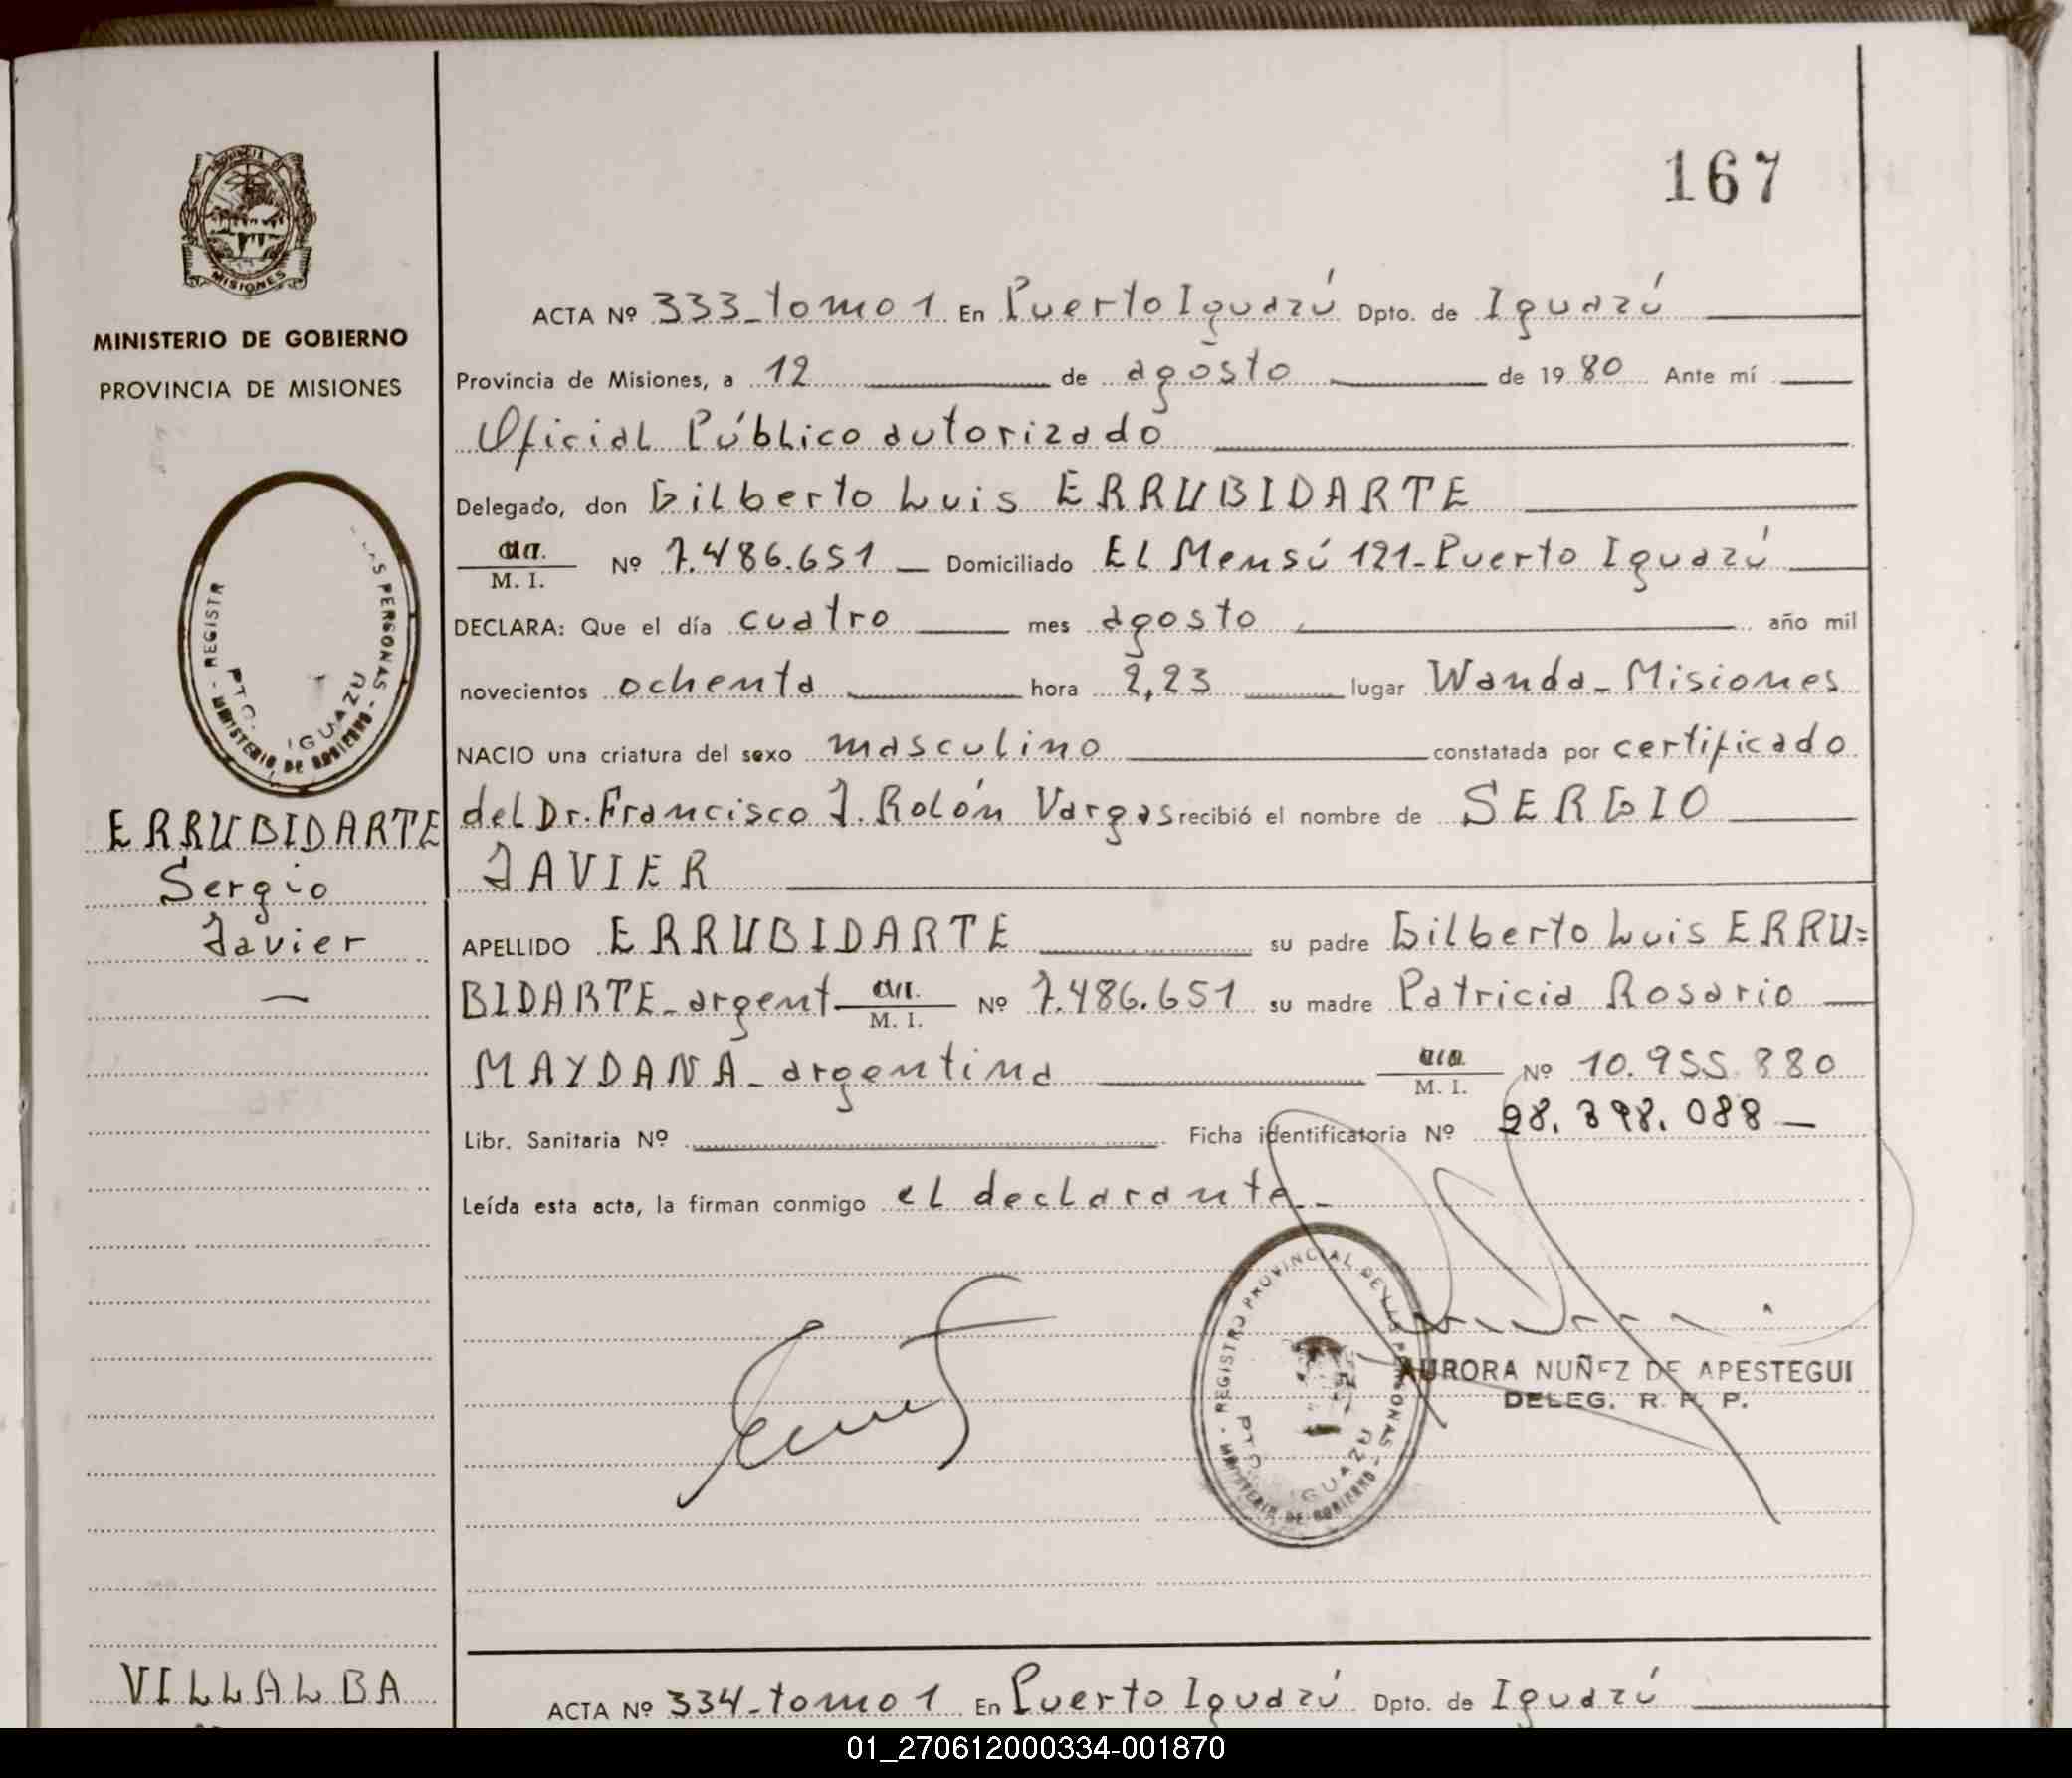 167
PROVINCIA DE
MISIONES
MINISTERIO DE GOBIERNO
PROVINCIA DE MISIONES
ACTA Nº 333_tomo 1 En Puerto Iguazú Dpto. de Iguazú
Provincia de Misiones, a 12 de agosto de 1980 Ante mí
Oficial Público autorizado
Delegado, don Gilberto Luis ERRUBIDARTE
M. I. Nº 7.486.651 Domiciliado El Mensú 121-Puerto Iguazú
DECLARA: Que el día cuatro mes agosto año mil
novecientos ochenta hora 2,23 lugar Wanda_Misiones
NACIO una criatura del sexo masculino constatada por certificado
del Dr. Francisco J. Rolón Vargas recibió el nombre de SERGIO
JAVIER
APELLIDO ERRUBIDARTE su padre Gilberto Luis ERRU=
BIDARTE_argent M. I. Nº 7.486.651 su madre Patricia Rosario
MAYDANA_argentina M. I. Nº 10.955.880
Libr. Sanitaria Nº Ficha identificatoria Nº 28.398.088
Leída esta acta, la firman conmigo el declarante_
REGISTR AS PERSONAS - MINISTERIO DE GOBIERNO -
PTO. IGUAZU
ERRUBIDARTE
Sergio
Javier
REGISTRO PROVINCIAL DE LAS PERSONAS - MINISTERIO DE GOBIERNO -
PTO IGUAZU
AURORA NUÑEZ DE APESTEGUI
DELEG. R. P. P.
VILLALBA
ACTA Nº 334_tomo 1 En Puerto Iguazú Dpto. de Iguazú
01_270612000334-001870